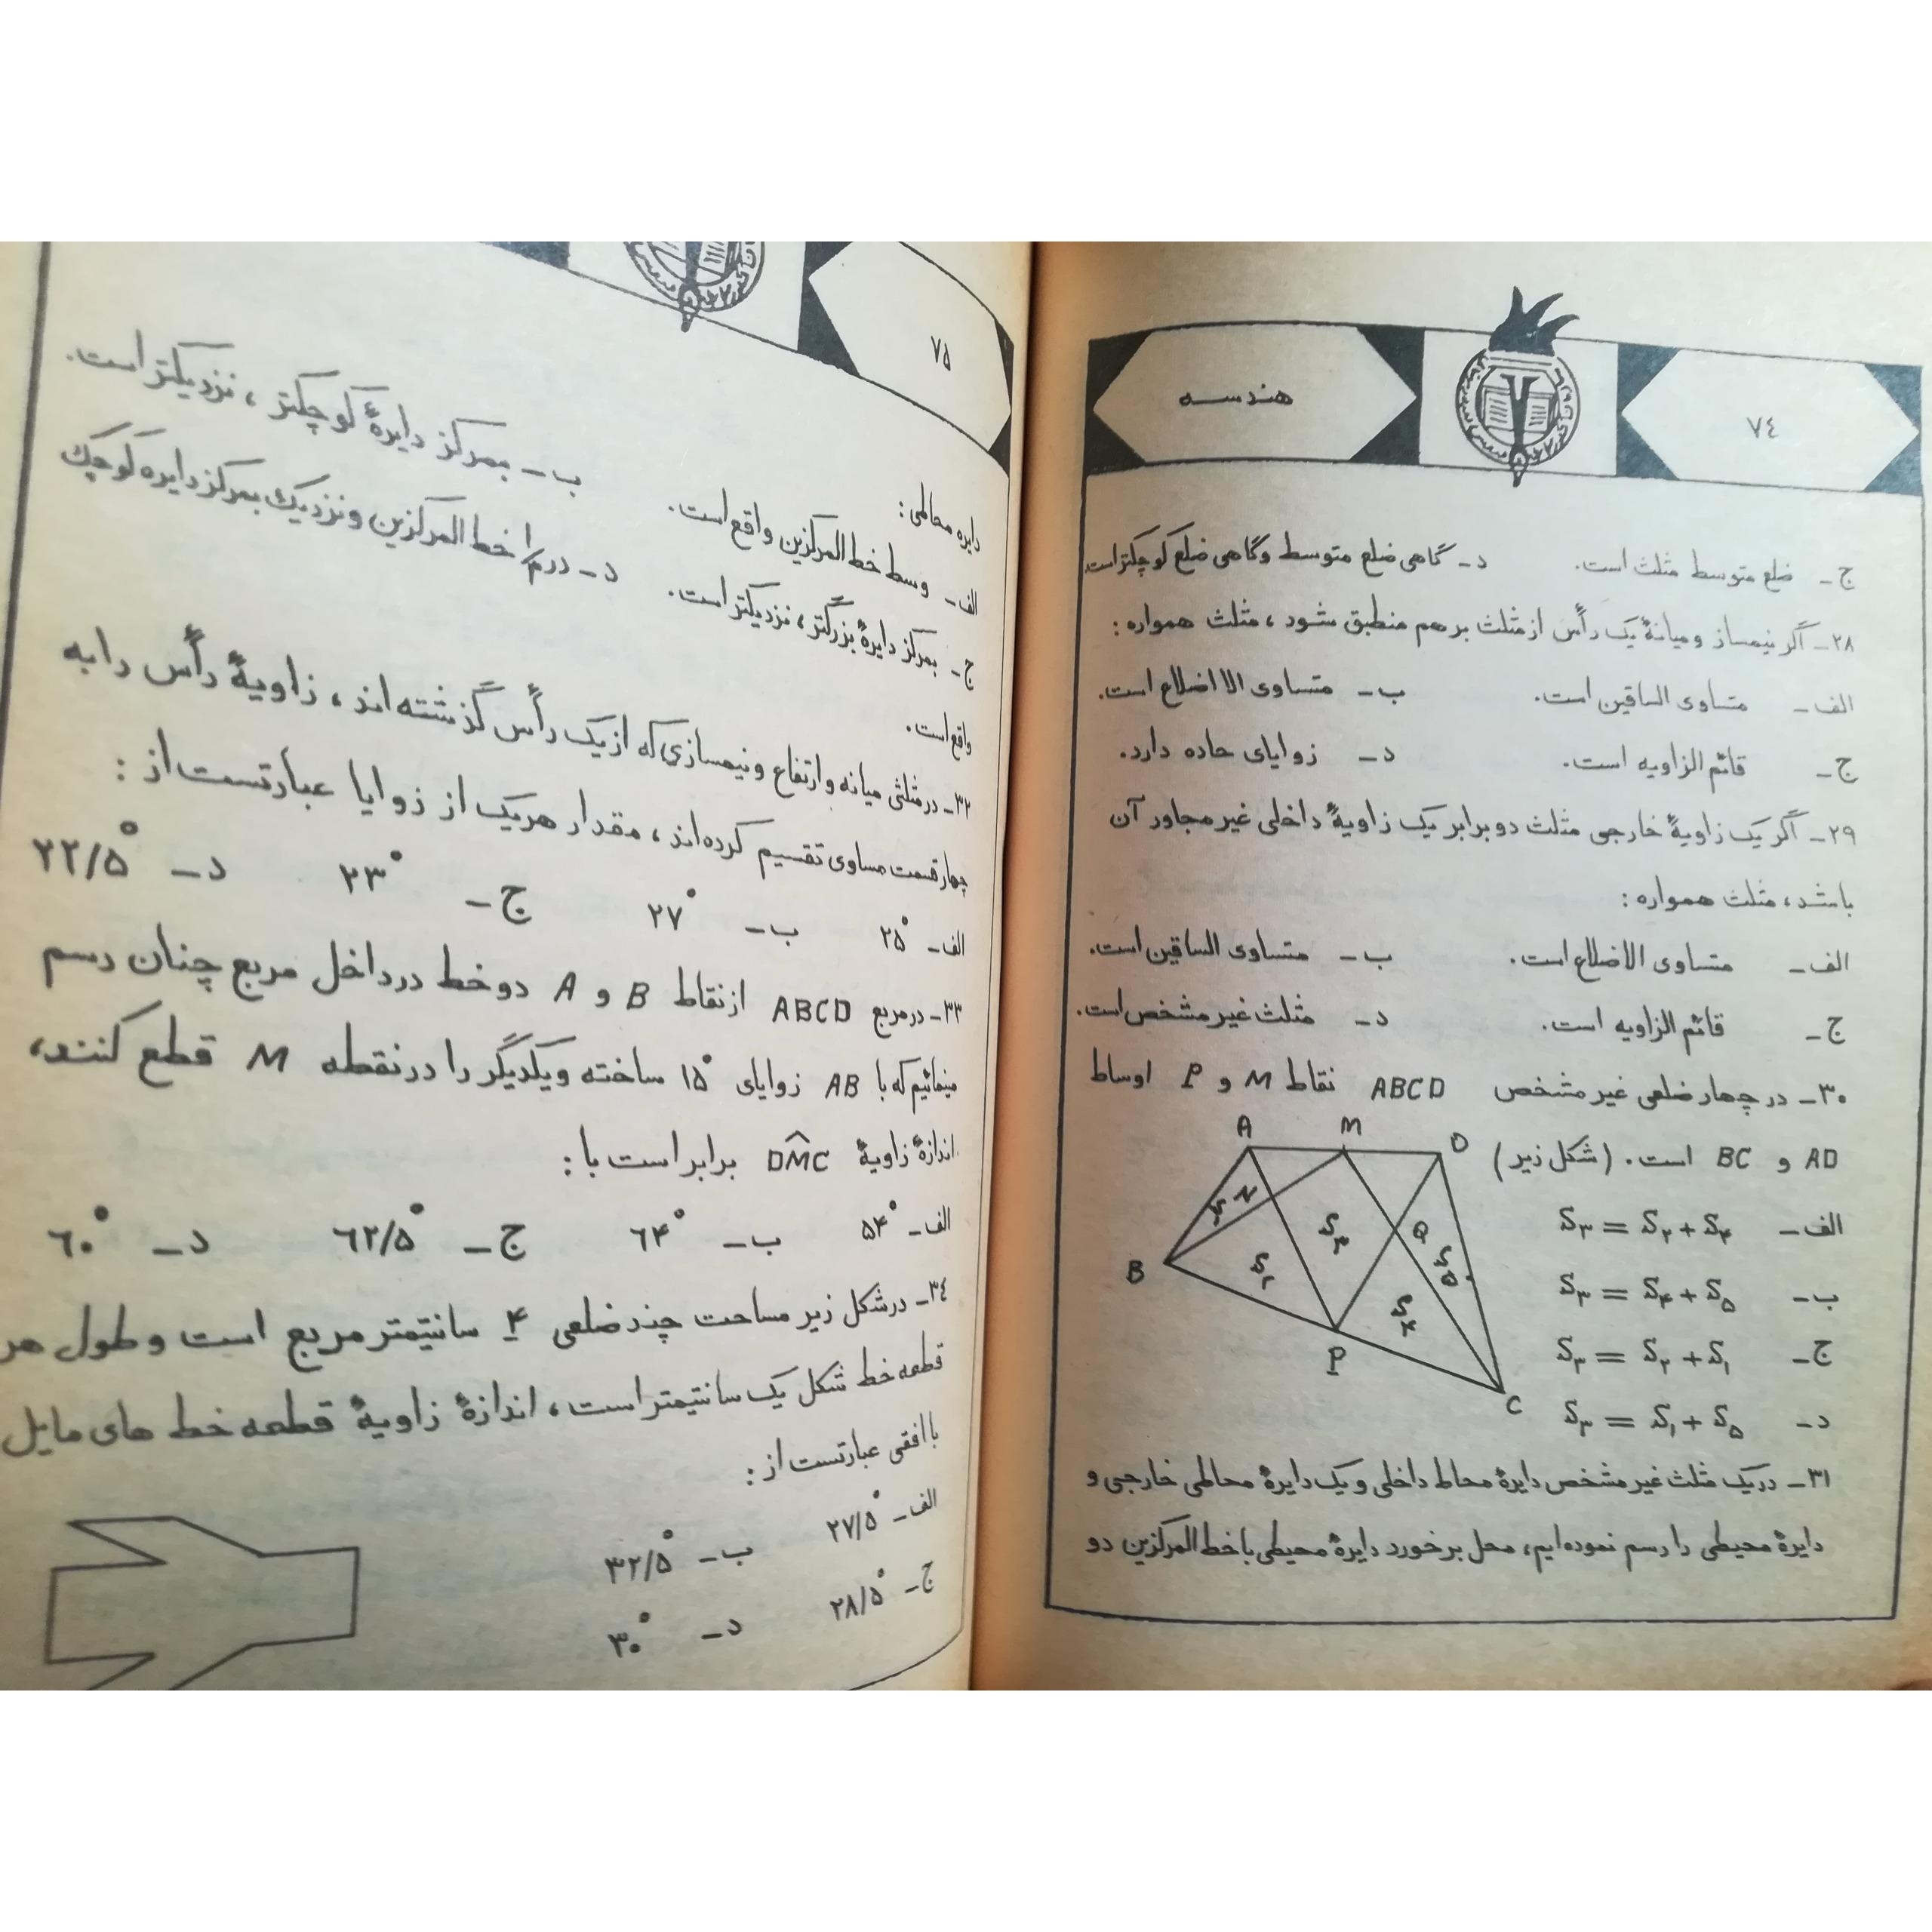 ٧٤
هندسه
ج- ضلع متوسط مثلث است. د- گاهی ضلع متوسط وگاهی ضلع کوچکتر است
۲۸- اگر نیمساز و میانهٔ یک رأس از مثلث بر هم منطبق شود، مثلث همواره:
الف- متساوی الساقین است. ب- متساوی الااضلاع است.
ج- قائم الزاویه است. د- زوایای حاده دارد.
۲۹- اگر یک زاویهٔ خارجی مثلث دو برابر یک زاویهٔ داخلی غیر مجاور آن
باشد، مثلث همواره:
الف- متساوی الاضلاع است. ب- متساوی الساقین است.
ج- قائم الزاویه است. د- مثلث غیر مشخص است.
۳۰- در چهار ضلعی غیر مشخص ABCD نقاط M و P اوساط
AD و BC است. (شکل زیر)
A M D
B N Q
P C
S₁ S₂ S₃ S₄ S₅
الف- S₃ = S₂ + S₄
ب- S₃ = S₄ + S₅
ج- S₃ = S₂ + S₁
د- S₃ = S₁ + S₅
۳۱- در یک مثلث غیر مشخص دایرهٔ محاط داخلی و یک دایرهٔ محاطی خارجی و
دایرهٔ محیطی را رسم نموده ایم، محل برخورد دایرهٔ محیطی با خط المرکزین دو
۷۵
دایره محاطی:
الف- وسط خط المرکزین واقع است. ب- بمرکز دایرهٔ کوچکتر، نزدیکتر است.
ج- بمرکز دایرهٔ بزرگتر، نزدیکتر است. د- در خط المرکزین و نزدیک بمرکز دایره کوچک
واقع است.
۳۲- در مثلثی میانه و ارتفاع و نیمسازی که از یک رأس گذشته اند، زاویهٔ رأس را به
چهار قسمت مساوی تقسیم کرده اند، مقدار هریک از زوایا عبارتست از:
الف- ۲۵° ب- ۲۷° ج- ۲۳° د- ۲۲/۵°
۳۳- در مربع ABCD از نقاط B و A دو خط در داخل مربع چنان رسم
مینمائیم که با AB زوایای ۱۵° ساخته و یکدیگر را در نقطه M قطع کنند،
اندازهٔ زاویهٔ DM̂C برابر است با:
الف- ۵۴° ب- ۶۴° ج- ۶۲/۵° د- ۶۰°
۳٤- در شکل زیر مساحت چند ضلعی ۴ سانتیمتر مربع است و طول هر
قطعه خط شکل یک سانتیمتر است، اندازهٔ زاویهٔ قطعه خط های مایل
با افقی عبارتست از:
الف- ۲۷/۵° ب- ۳۲/۵°
ج- ۲۸/۵° د- ۳۰°